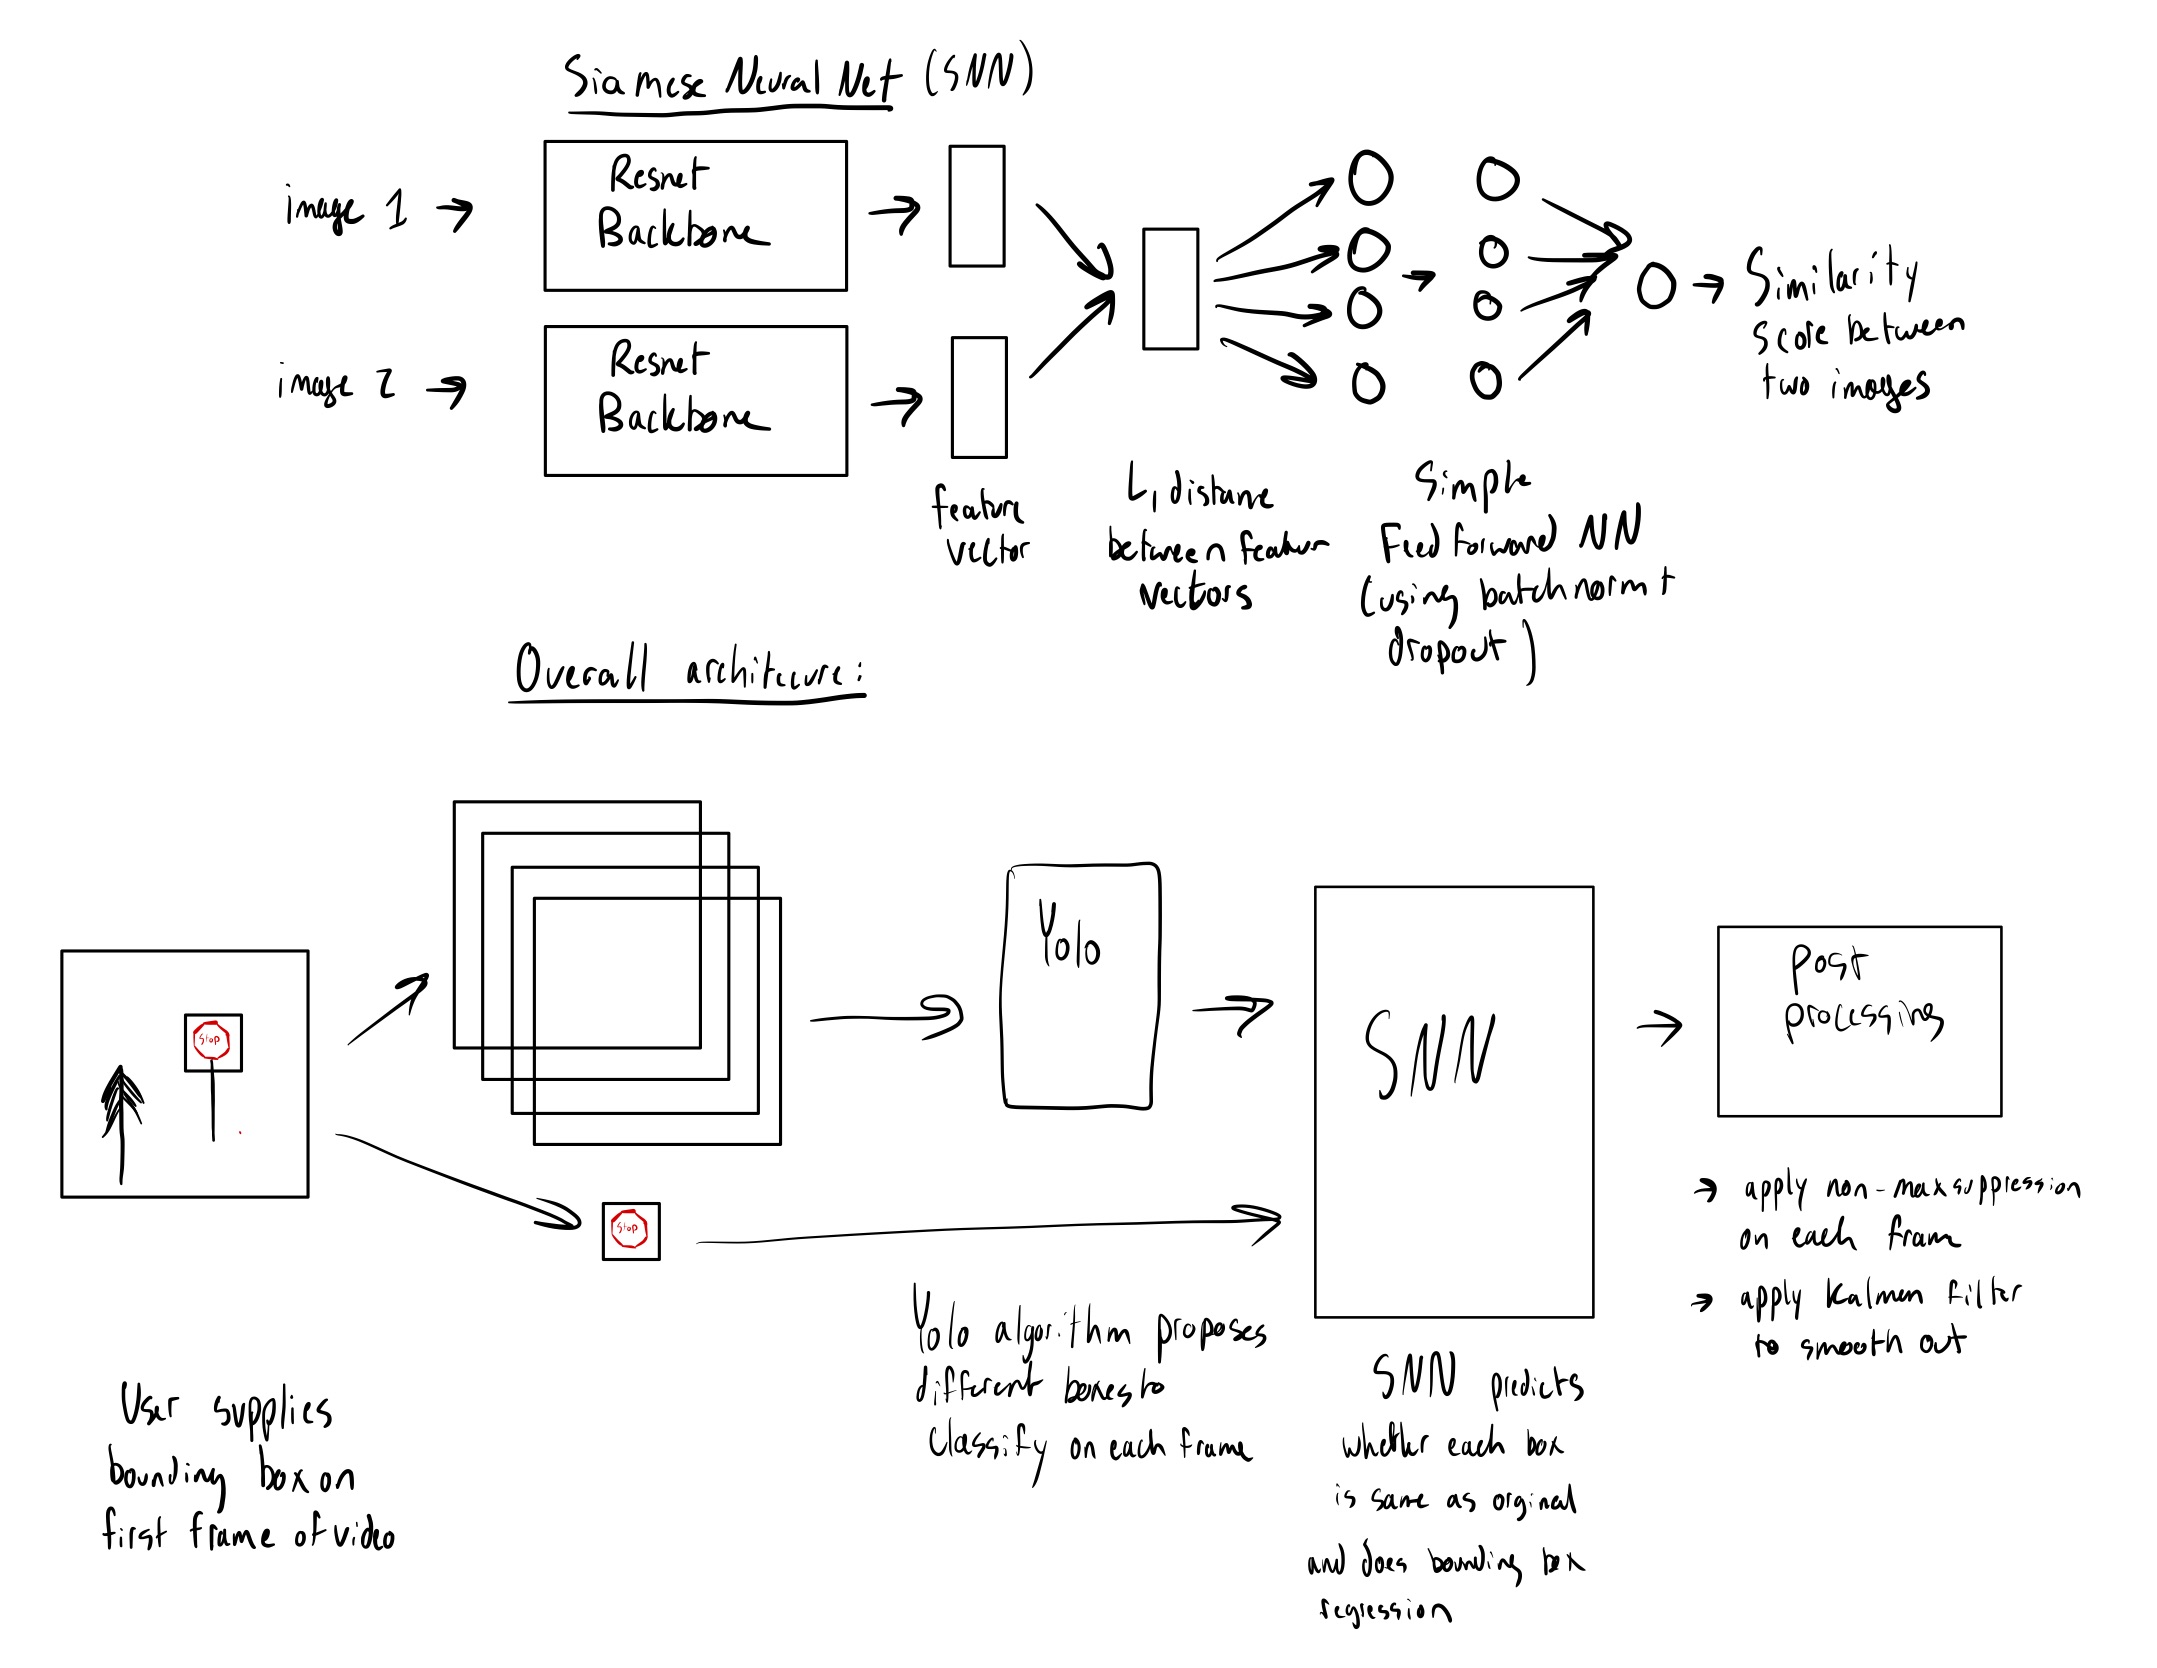 Siamese Neural Net (SNN)
image 1
Resnet
Backbone
image 2
Resnet
Backbone
feature
vector
L1 distance
between feature
vectors
Simple
Feed forward NN
(using batchnorm +
dropout)
Similarity
score between
two images
Overall architecure:
Stop
Stop
User supplies
bounding box on
first frame of video
Yolo
Yolo algorithm proposes
different boxes to
classify on each frame
SNN
SNN predicts
whether each box
is same as orginal
and does bounding box
regression
Post
processing
→ apply non-max suppression
on each frame
→ apply Kalman filter
to smooth out